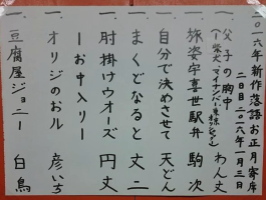 二〇一六年新作落語お正月寄席
二日目 二〇一六年一月三日
一、父子の胸中 わん丈
一、旅姿宇喜世駅弁 駒次
一、自分で決めさせて 天どん
一、まくどなると 丈二
ーお中入りー
一、肘掛けウオーズ 円丈
一、オリジのおル 彦いち
一、豆腐屋ジョニー 白鳥